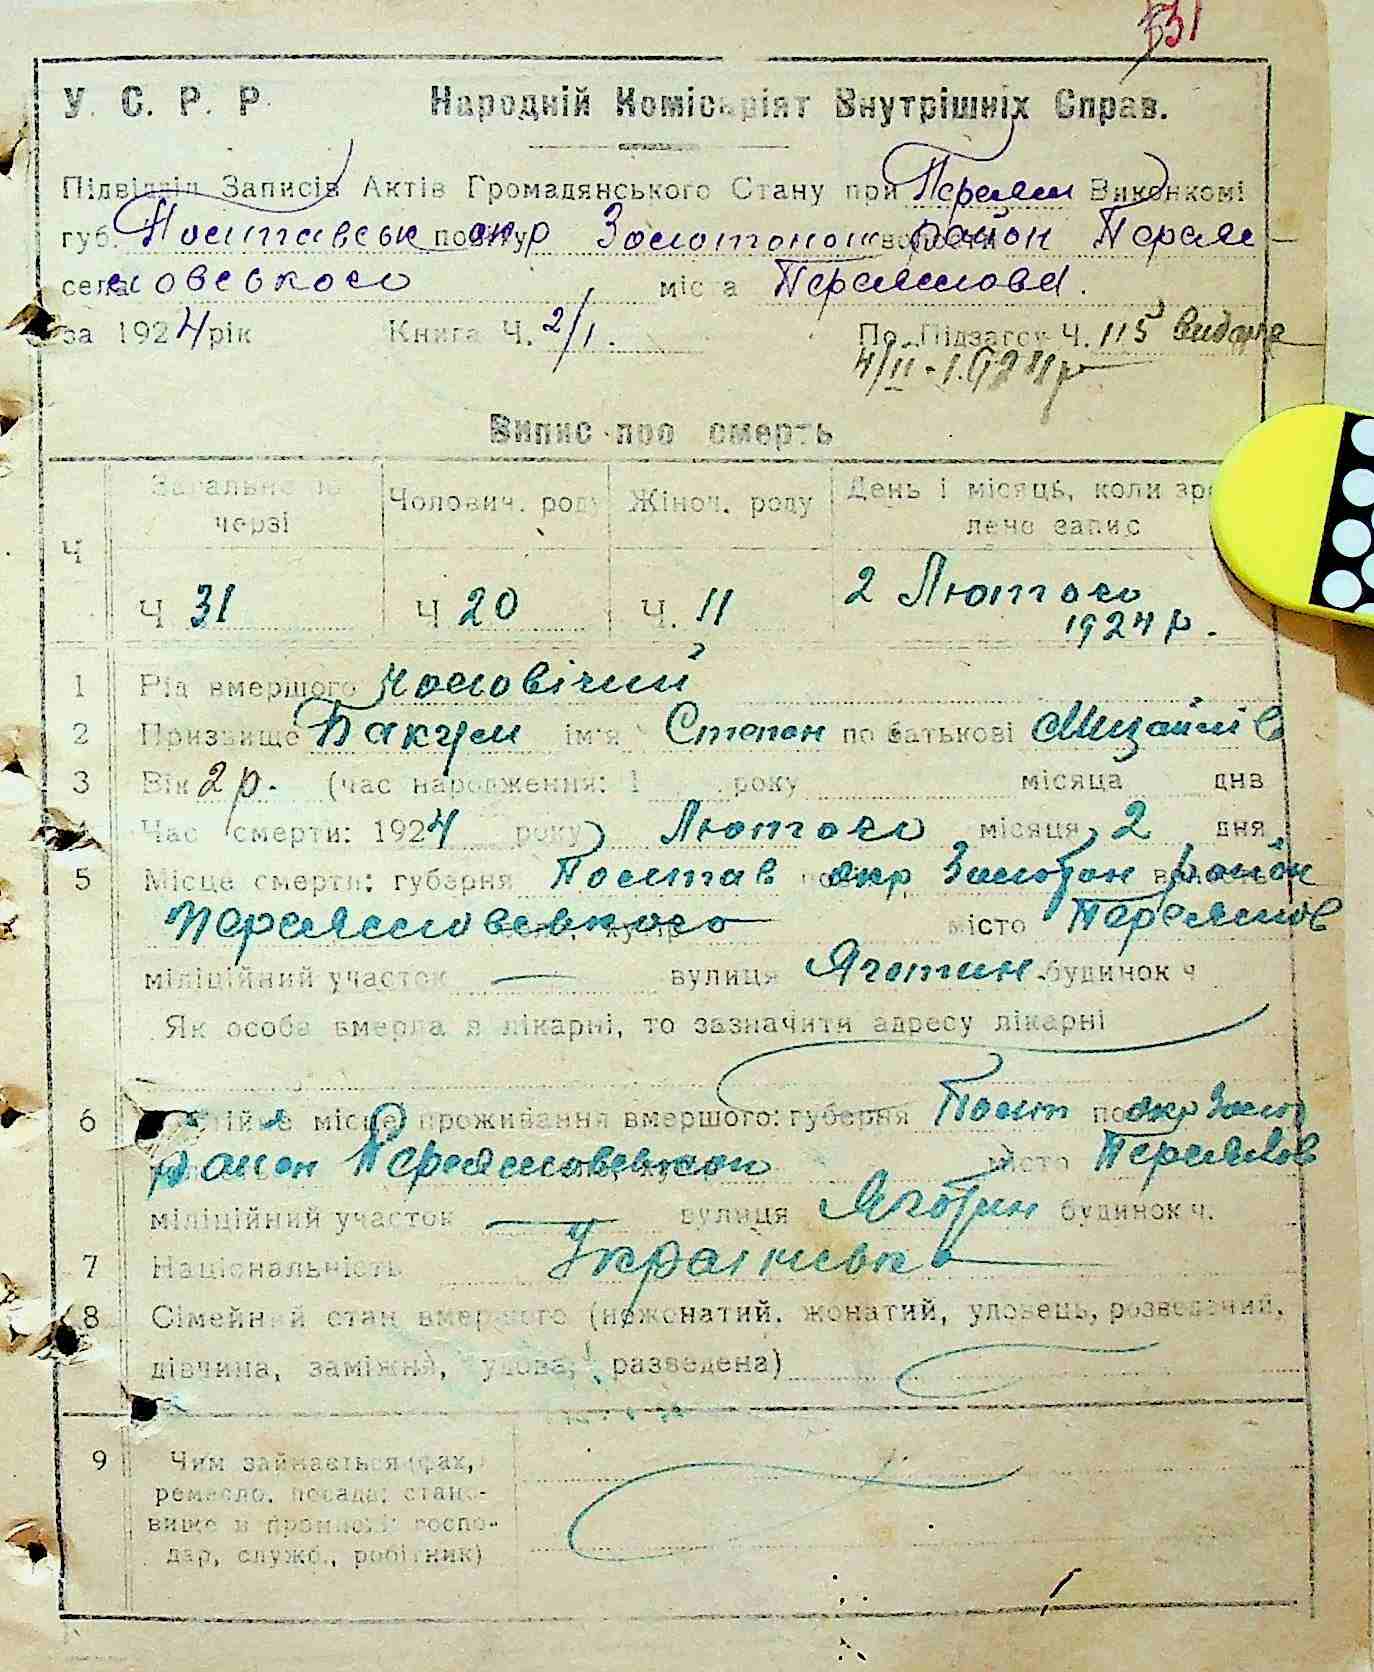 531
У. С. Р. Р. Народній Комісаріят Внутрішніх Справ.
Підвідділ Записів Актів Громадянського Стану при Переям Виконкомі
губ. Полтавськ окр Золотонош район Переяс–
села ловського міста Переяслова.
за 1924 рік Книга Ч. 2/1. По Підзагсу Ч. 115 видана
4/II-1924 р
Випис про смерть
Ч Загальне по черзі Чолович. роду Жіноч. роду День і місяць, коли зро
лено запис
Ч 31 Ч 20 Ч. 11 2 Лютого
1924 р.
1 Рід вмершого чоловічий
2 Призвище Бакум ім'я Степан по батькові Михайлів
3 Вік 2 р. (час народження: 1 року місяца дня
4 Час смерти: 1924 року Лютого місяця 2 дня
5 Місце смерти: губерня Полтав окр Золотон район
Переясловського місто Переяслов
міліційний участок — вулиця Яготин будинок ч
Як особа вмерла в лікарні, то зазначити адресу лікарні
6 Постійне місце проживання вмершого: губерня Полт окр Золот
район Переясловський місто Переяслов
міліційний участок — вулиця Яготин будинок ч.
7 Національність
8 Сімейний стан вмершого (нежонатий, жонатий, удовець, розведений,
дівчина, заміжня, удова, разведена)
9 Чим займається (фах,
ремесло, посада; стано-
вище в промислі: госпо-
дар, служб., робітник)